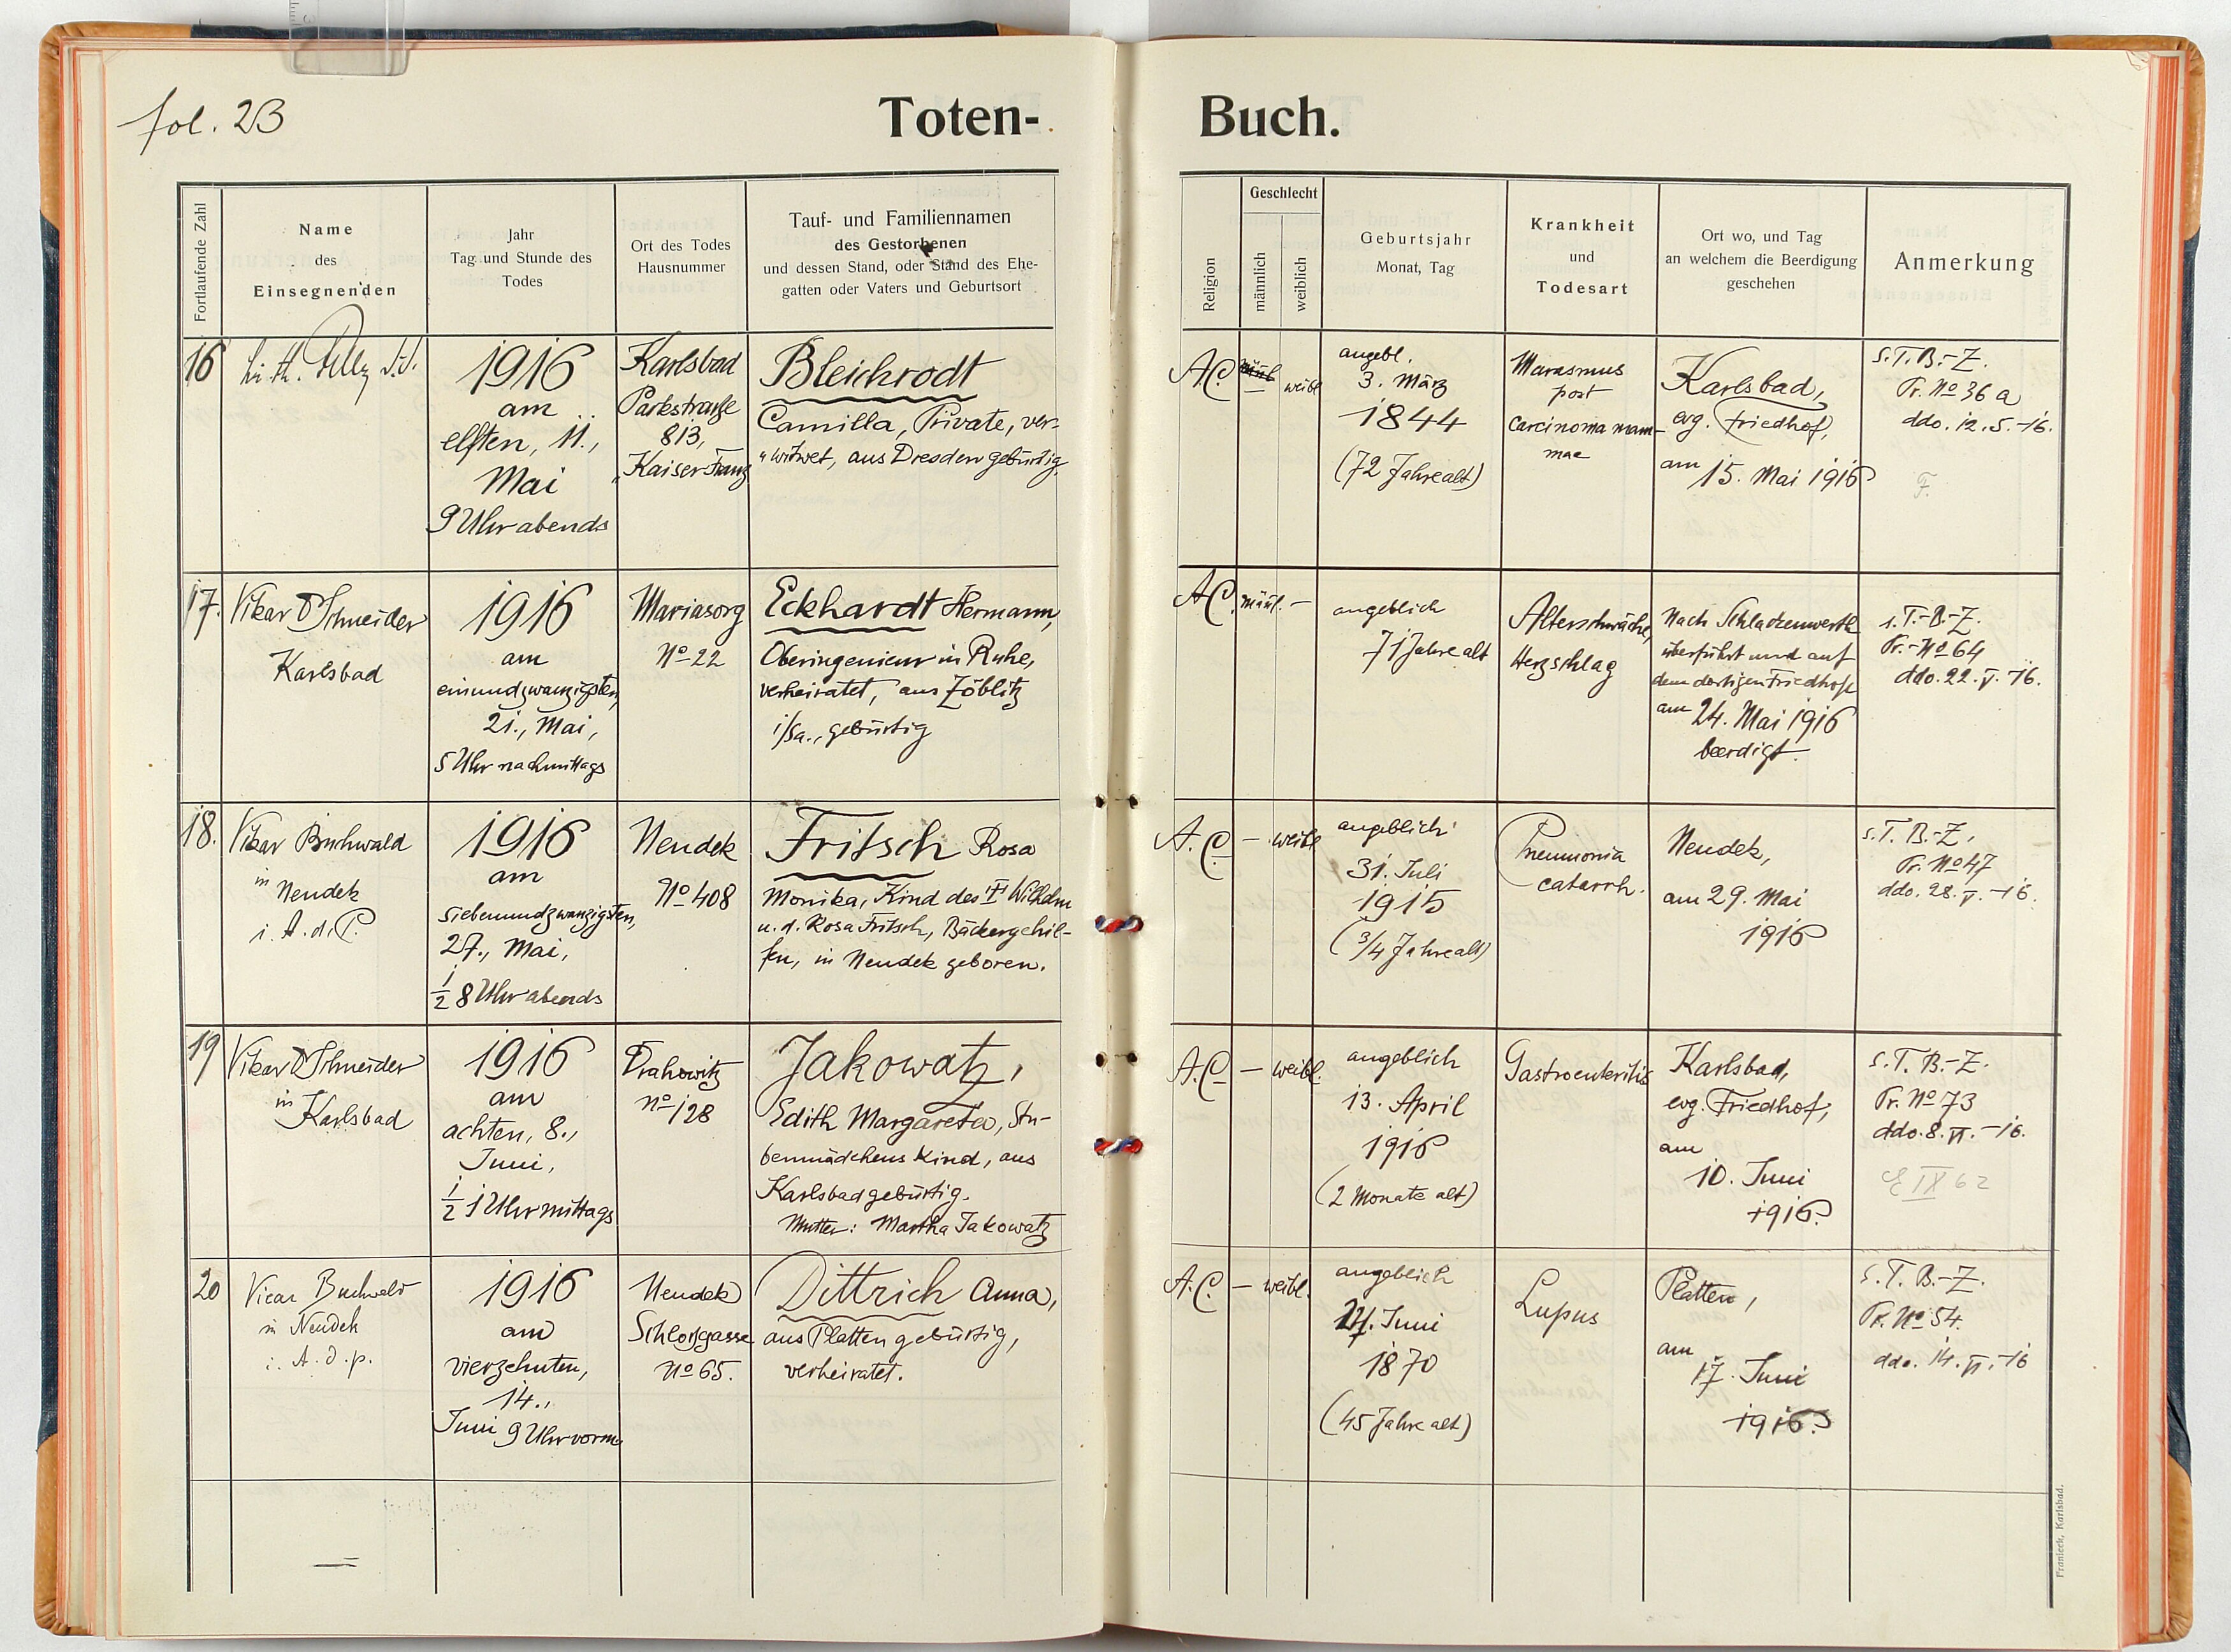 fol. 23
Toten-
Buch.
Fortlaufende Zahl
Name
des
Einsegnenden
Jahr
Tag und Stunde des
Todes
Ort des Todes
Hausnummer
Tauf- und Familiennamen
des Gestorbenen
und dessen Stand, oder Stand des Ehe-
gatten oder Vaters und Geburtsort
Religion
Geschlecht
männlich
weiblich
Geburtsjahr
Monat, Tag
Krankheit
und
Todesart
Ort wo, und Tag
an welchem die Beerdigung
geschehen
Anmerkung
16
1916
am
elften, 11.,
Mai
9 Uhr abends
Karlsbad
Parkstraße
813,
"Kaiser Franz
Bleichrodt
Camilla, Private, ver-
witwet, aus Dresden gebürtig.
A.C.
weibl
angebl.
3. März
1844
(72 Jahre alt)
Marasmus
post
carcinoma mam-
mae
Karlsbad,
evg. Friedhof,
am 15. Mai 1916
s.T.B.-Z.
Pr. No 36 a
ddo. 12.5.-16.
F.
17.
Vikar Schneider
Karlsbad
1916
am
einundzwanzigsten,
21., Mai,
5 Uhr nachmittags
Mariasorg
No 22
Eckhardt Hermann,
Oberingenieur in Ruhe,
verheiratet, aus Zöblitz
i/Sa., gebürtig
A.C. männl. -
angeblich
71 Jahre alt
Altersschwäche,
Herzschlag
Nach Schlackenwerth
überführt und auf
dem dortigen Friedhofe
am 24. Mai 1916
beerdigt.
s.T.-B.-Z.
Pr.-No 64
ddo. 22.V.-16.
18.
Vikar Buchwald
in Neudek
i. A. d. P.
1916
am
siebenundzwanzigsten,
27., Mai,
1/2 8 Uhr abends
Neudek
No 408
Fritsch Rosa
Monika, Kind des Wilhelm
u. d. Rosa Fritsch, Bäckergehil-
fen, in Neudek geboren.
A.C. - weibl
angeblich
31. Juli
1915
(3/4 Jahre alt)
Pneumonia
catarrh.
Neudek,
am 29. Mai
1916
s.T.B.-Z.
Pr. No 47
ddo. 28.V.-16.
19
Vikar Schneider
in Karlsbad
1916
am
achten, 8.,
Juni,
1/2 1 Uhr mittags
Drahowitz
No 128
Jakowatz,
Edith Margareta, Stu-
benmädchens Kind, aus
Karlsbad gebürtig.
Mutter: Martha Jakowatz
A.C. - weibl.
angeblich
13. April
1916
(2 Monate alt)
Gastroenteritis
Karlsbad,
evg. Friedhof,
am
10. Juni
1916.
s.T.B.-Z.
Pr. No 73
ddo. 8.VI.-16.
E IX 62
20
Vicar Buchwald
in Neudek
i. A. d. p.
1916
am
vierzehnten,
14.,
Juni 9 Uhr vorm.
Neudek
Schloßgasse
No 65.
Dittrich Anna,
aus Platten gebürtig,
verheiratet.
A.C. - weibl.
angeblich
24. Juni
1870
(45 Jahre alt)
Lupus
Platten,
am
17. Juni
1916.
s.T.B.-Z.
Pr. No 54.
ddo. 14.VI.-16
Franieck, Karlsbad.